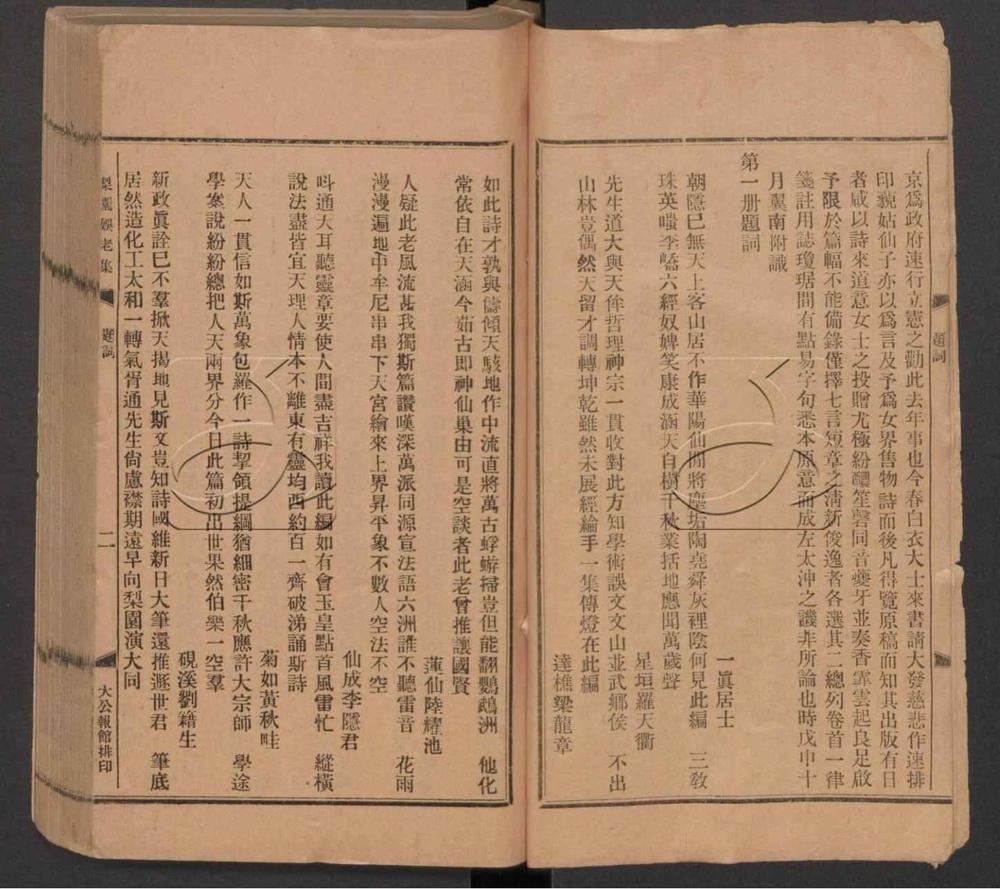 題詞
京爲政府速行立憲之勸此去年事也今春白衣大士來書請大發慈悲作速排
印藐姑仙子亦以爲言及予爲女界售物詩而後凡得覽原稿而知其出版有日
者咸以詩來道意女士之投贈尤極紛醲笙磬同音夔牙並奏香霏雲起良足啟
予限於篇幅不能備錄僅擇七言短章之淸新俊逸者各選其二總列卷首一律
箋註用誌瓊琚間有點易字句悉本原意而成左太沖之譏非所論也時戊申十
月翼南附識
第一册題詞
一眞居士
朝隱已無天上客山居不作華陽仙閒將塵垢陶堯舜灰裡陰何見此編　三敎
珠英嗤李嶠六經奴婢笑康成涵天自樹千秋業括地應聞萬歲聲
星垣羅天衢
先生道大與天侔哲理神宗一貫收對此方知學術誤文文山並武鄕侯　不出
山林豈偶然天留才調轉坤乾雖然未展經綸手一集傳燈在此編
達樵梁龍章
如此詩才孰與儔傾天駭地作中流直將萬古蜉蝣掃豈但能翻鸚鵡洲　他化
常依自在天涵今茹古即神仙巢由可是空談者此老曾推讓國賢
蓮仙陸耀池
人疑此老風流甚我獨斯篇讚嘆深萬派同源宣法語六洲誰不聽雷音　花雨
漫漫遍地中牟尼串串下天宮繪來上界昇平象不數人空法不空
仙成李隱君
呌通天耳聽靈章要使人間盡吉祥我讀此編如有會玉皇點首風雷忙　縱橫
說法盡皆宜天理人情本不離東有靈均西約百一齊破涕誦斯詩
菊如黃秋畦
天人一貫信如斯萬象包羅作一詩挈領提綱猶細密千秋應許大宗師　學途
學案說紛紛總把人天兩界分今日此篇初出世果然伯樂一空羣
硯溪劉籍生
新政眞詮已不羣掀天揭地見斯文豈知詩國維新日大筆還推遯世君　筆底
居然造化工太和一轉氣胥通先生尙慮襟期遠早向梨園演大同
梨園娛老集
題詞
二
大公報館排印